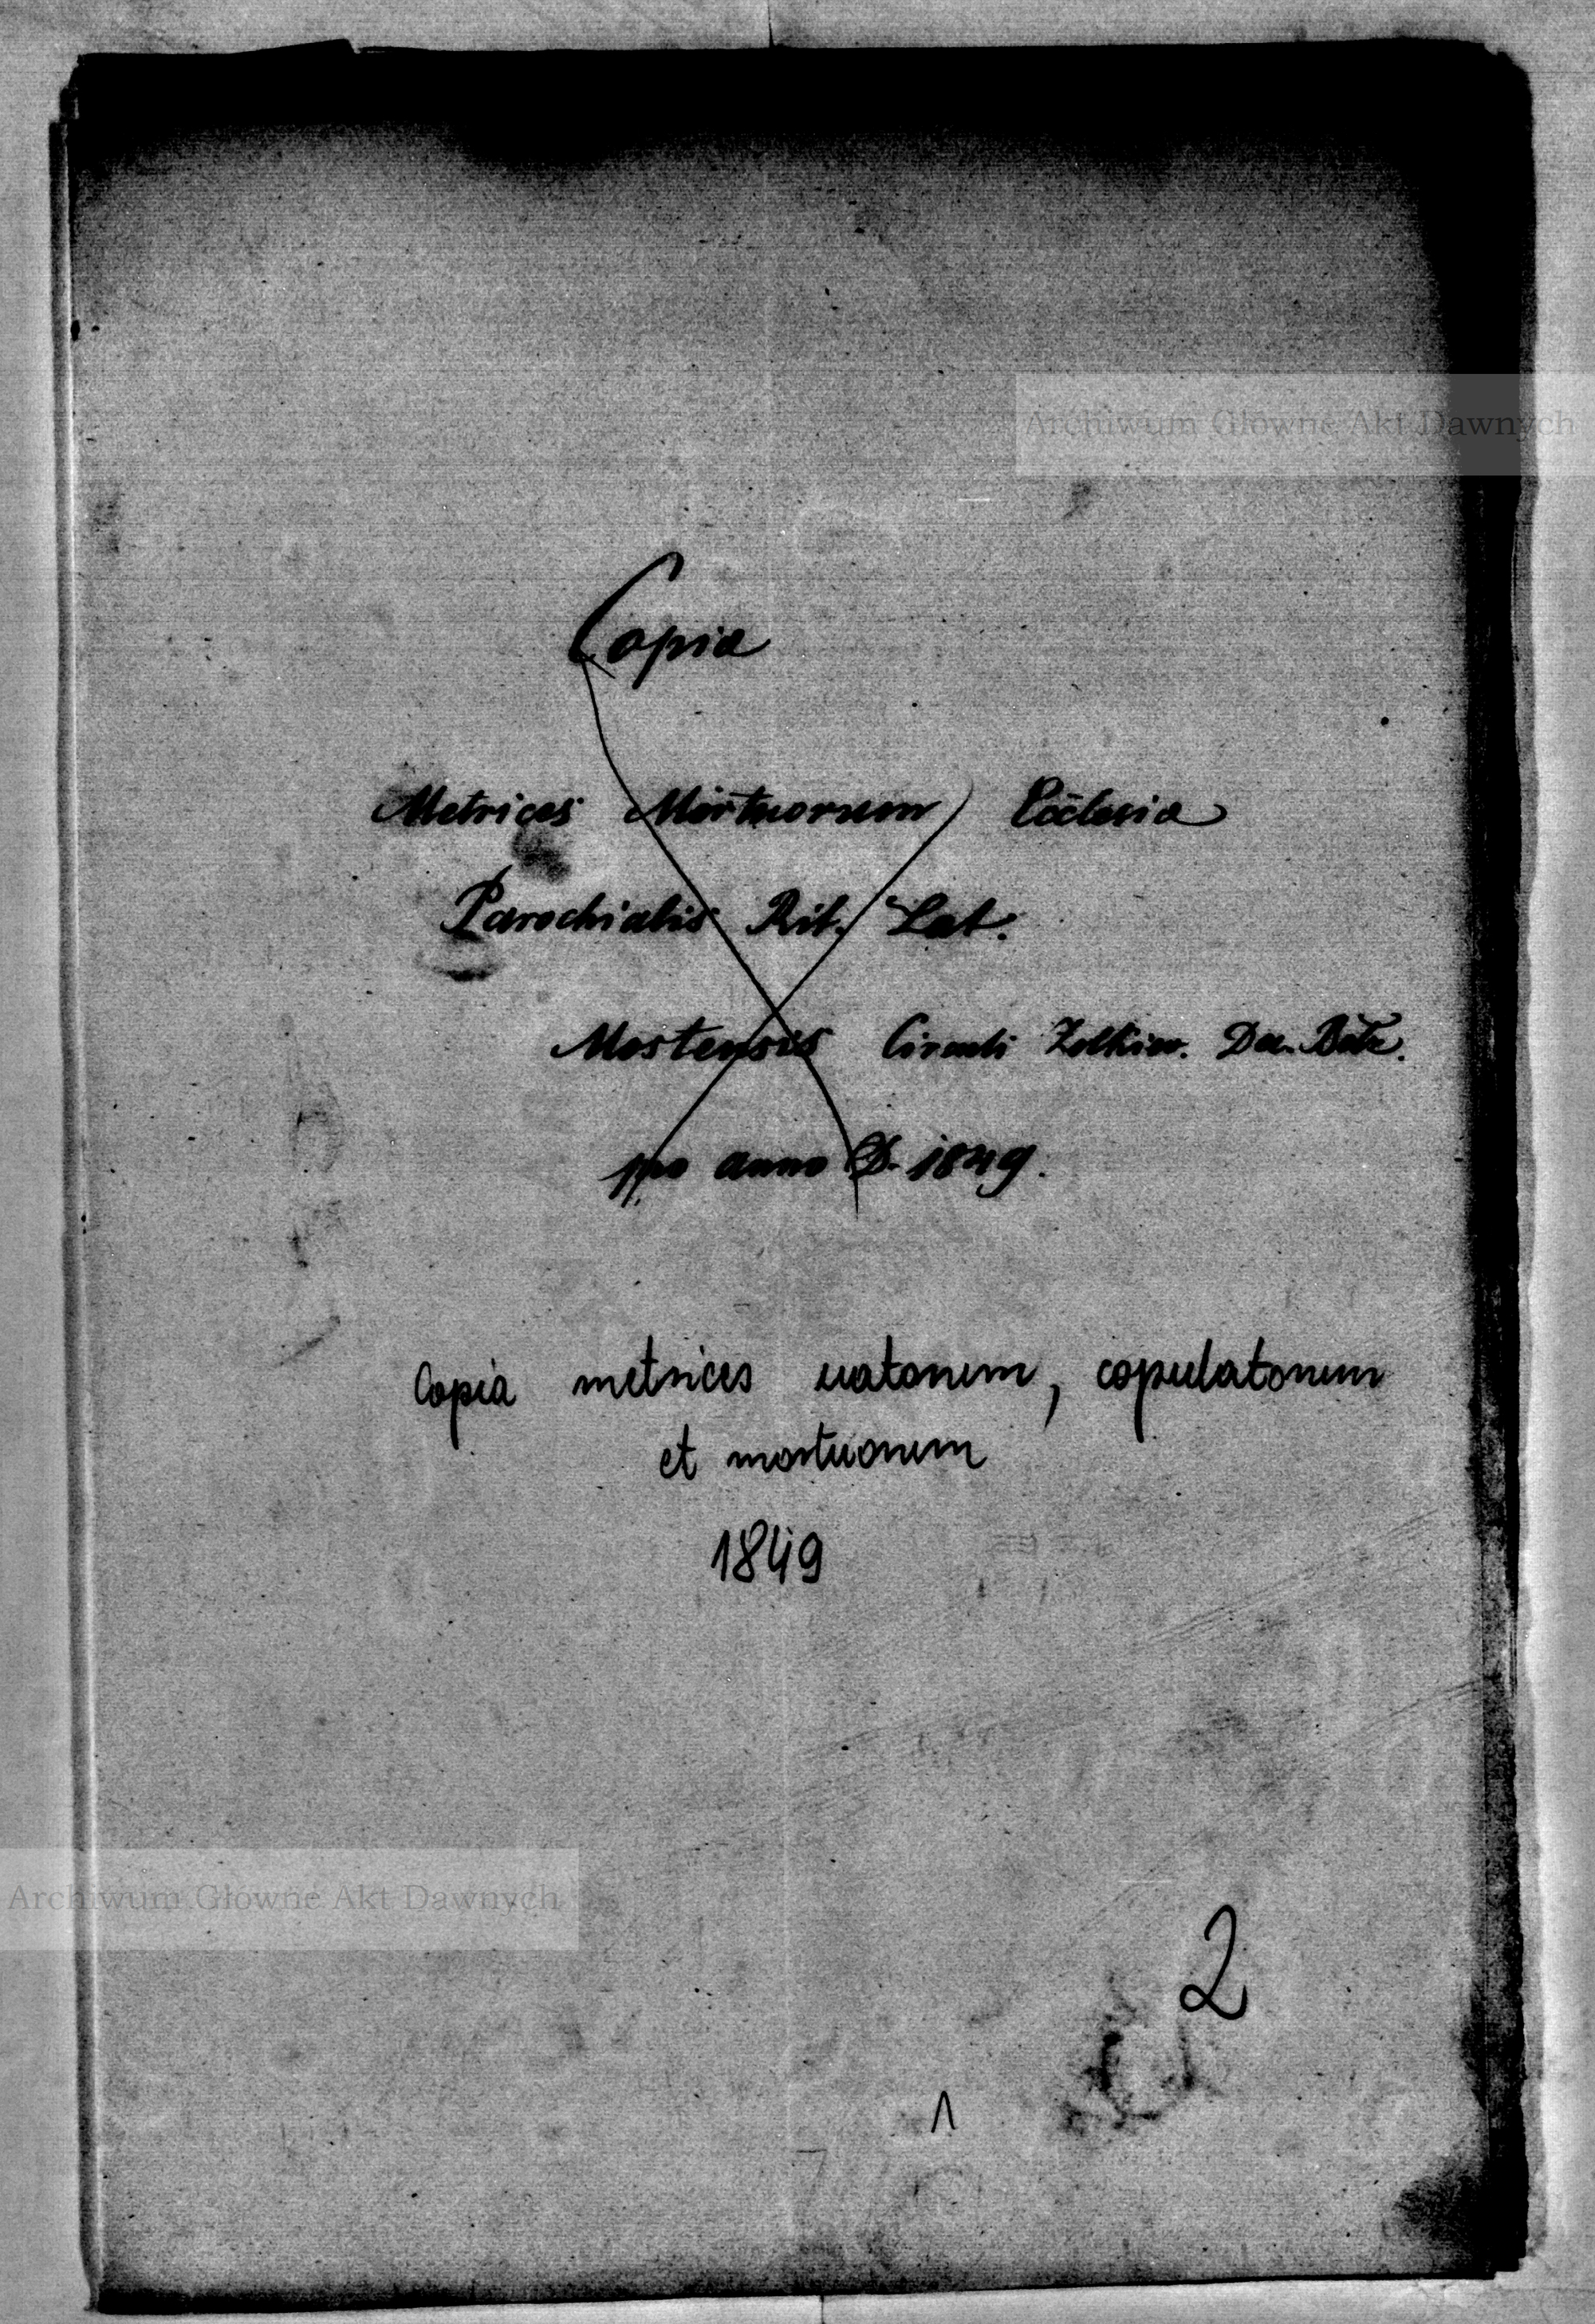 Archiwum Główne Akt Dawnych
Copia
Metrices Mortuorum Ecclesia
Parochialis Rit. Lat.
Mostensis Circuli Zolkiew. Dec. Belz.
pro anno D. 1849.
Copia metrices natorum, copulatorum
et mortuorum
1849
Archiwum Główne Akt Dawnych
2
1